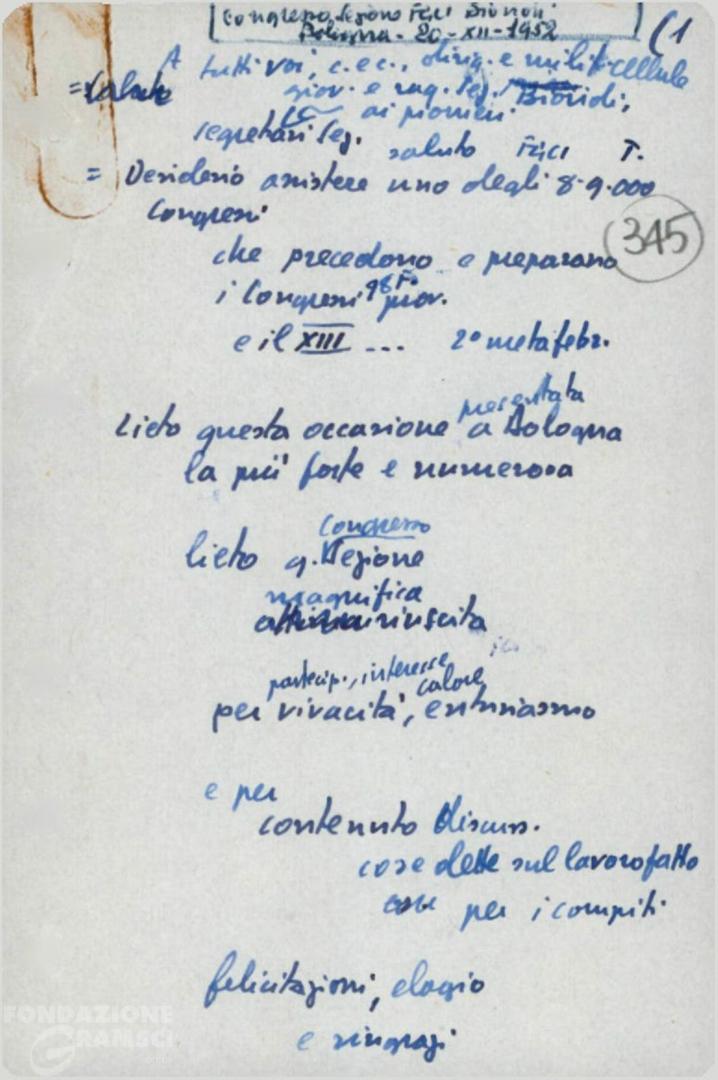 Congresso sezione FGCI Bionói
Bologna - 20-XII-1952
(1
A tutti voi, c. e c., dirig. e milit. cellule
= Saluto giov. e rag. sez. Bióridi,
ai pionieri
segretari sez.
saluto FGCI T.
= Desiderio assistere uno degli 8-9.000
Congressi
345
che precedono e preparano
i Congressi 98 F. prov.
e il XIII ... 2º metà febr.
presentata
Lieto questa occasione a Bologna
la più forte e numerosa
Congresso
lieto q. sezione
magnifica
riuscita
partecip., interesse
calore
per vivacità, entusiasmo
e per
contenuto discuss.
cose dette sul lavoro fatto
per i compiti
felicitazioni, elogio
e ringrazi
FONDAZIONE
GRAMSCI